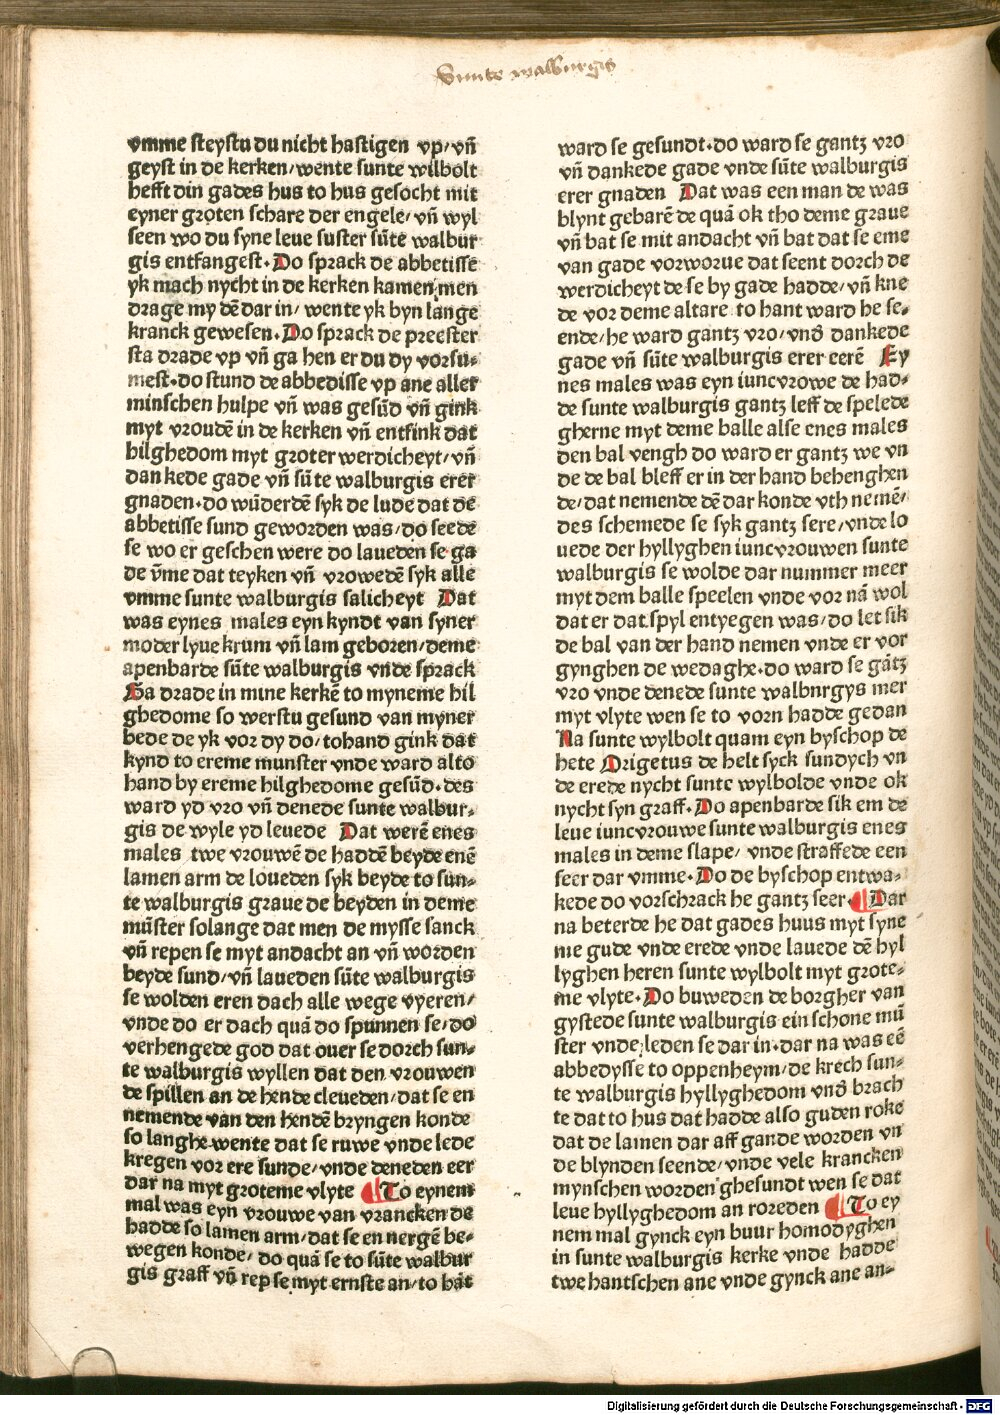 Sunte walburgis
vmme steystu du nicht hastigen vp/vn̄
geyst in de kerken/wente sunte wilbolt
hefft din gades hus to hus gesocht mit
eyner groten schare der engele/vn̄ wyl
seen wo du syne leue suster sūte walbur
gis entfangest. Do sprack de abbetisse
yk mach nycht in de kerken kamen men
drage my dē dar in/wente yk byn lange
kranck gewesen. Do sprack de preester
sta drade vp vn̄ ga hen er du dy vorsu⸗
mest.do stund de abbedisse vp ane aller
minschen hulpe vn̄ was gesūd vn̄ gink
myt vroudē in de kerken vn̄ entfink dat
hilghedom myt groter werdicheyt/vn̄
dan kede gade vn̄ sūte walburgis erer
gnaden.do wūderdē syk de lude dat de
abbetisse sund geworden was/do seede
se wo er geschen were do laueden se ga
de v̄me dat teyken vn̄ vrowedē syk alle
vmme sunte walburgis salicheyt Dat
was eynes males eyn kyndt van syner
moder lyue krum vn̄ lam geboren/deme
apenbarde sūte walburgis vnde sprack
Ga drade in mine kerkē to myneme hil
ghedome so werstu gesund van myner
bede de yk vor dy do/tohand gink dat
kynd to ereme munster vnde ward alto
hand by ereme hilghedome gesūd.des
ward yd vro vn̄ denede sunte walbur⸗
gis de wyle yd leuede Dat werē enes
males twe vrouwē de haddē beyde enē
lamen arm de loueden syk beyde to sun⸗
te walburgis graue de beyden in deme
mūster solange dat men de mysse sanck
vn̄ repen se myt andacht an vn̄ worden
beyde sund/vn̄ laueden sūte walburgis
se wolden eren dach alle wege vyeren/
vnde do er dach quā do spunnen se/do
verhengede god dat ouer se dorch sun⸗
te walburgis wyllen dat den vrouwen
de spillen an de hende cleueden/dat se en
nemende van den hendē bryngen konde
so langhe wente dat se ruwe vnde lede
kregen vor ere sunde/vnde deneden eer
dar na myt groteme vlyte ¶ To eynem
mal was eyn vrouwe van vrancken de
hadde so lamen arm/dat se en nergē be⸗
wegen konde/ do quā se to sūte walbur
gis graff vn̄ rep se myt ernste an/to hāt
ward se gesundt.do ward se gantz vro
vn̄ dankede gade vnde sūte walburgis
erer gnaden Dat was een man de was
blynt gebarē de quā ok tho deme graue
vn̄ bat se mit andacht vn̄ bat dat se eme
van gade vorworue dat seent dorch de
werdicheyt de se by gade hadde/vn̄ kne
de vor deme altare to hant ward he se⸗
ende/he ward gantz vro/vnd̄ dankede
gade vn̄ sūte walburgis erer eerē Ey
nes males was eyn iuncvrowe de had⸗
de sunte walburgis gantz leff de spelede
gherne myt deme balle alse enes males
den bal vengh do ward er gantz we vn
de de bal bleff er in der hand behenghen
de/dat nemende dē dar konde vth nemē/
des schemede se syk gantz sere/vnde lo
uede der hyllyghen iuncvrouwen sunte
walburgis se wolde dar nummer meer
myt dem balle speelen vnde vor nā wol
dat er dat spyl entyegen was/do let sik
de bal van der hand nemen vnde er vor
gynghen de wedaghe.do ward se gātz
vro vnde denede sunte walbnrgys mer
myt vlyte wen se to vorn hadde gedan
Na sunte wylbolt quam eyn byschop de
hete Origetus de helt syck sundych vn
de erede nycht sunte wylbolde vnde ok
nycht syn graff. Do apenbarde sik em de
leue iuncvrouwe sunte walburgis enes
males in deme slape/ vnde straffede een
seer dar vmme. Do de byschop entwa⸗
kede do vorschrack he gantz seer. ¶ Dar
na beterde he dat gades huus myt syne
me gude vnde erede vnde lauede dē hyl
lyghen heren sunte wylbolt myt grote⸗
me vlyte. Do buweden de borgher van
gystede sunte walburgis ein schone mū
ster vnde leden se dar in.dar na was eē
abbedysse to oppenheym/de krech sun⸗
te walburgis hyllyghedom vnd̄ brach
te dat to hus dat hadde also guden roke
dat de lamen dar aff gande worden vn
de blynden seende/vnde vele krancken
mynschen worden ghesundt wen se dat
leue hyllyghedom an roreden ¶ To ey
nem mal gynck eyn buur homodyghen
in sunte walburgis kerke vnde hadde
twe hantschen ane vnde gynck ane an⸗
Digitalisierung gefördert durch die Deutsche Forschungsgemeinschaft - DFG